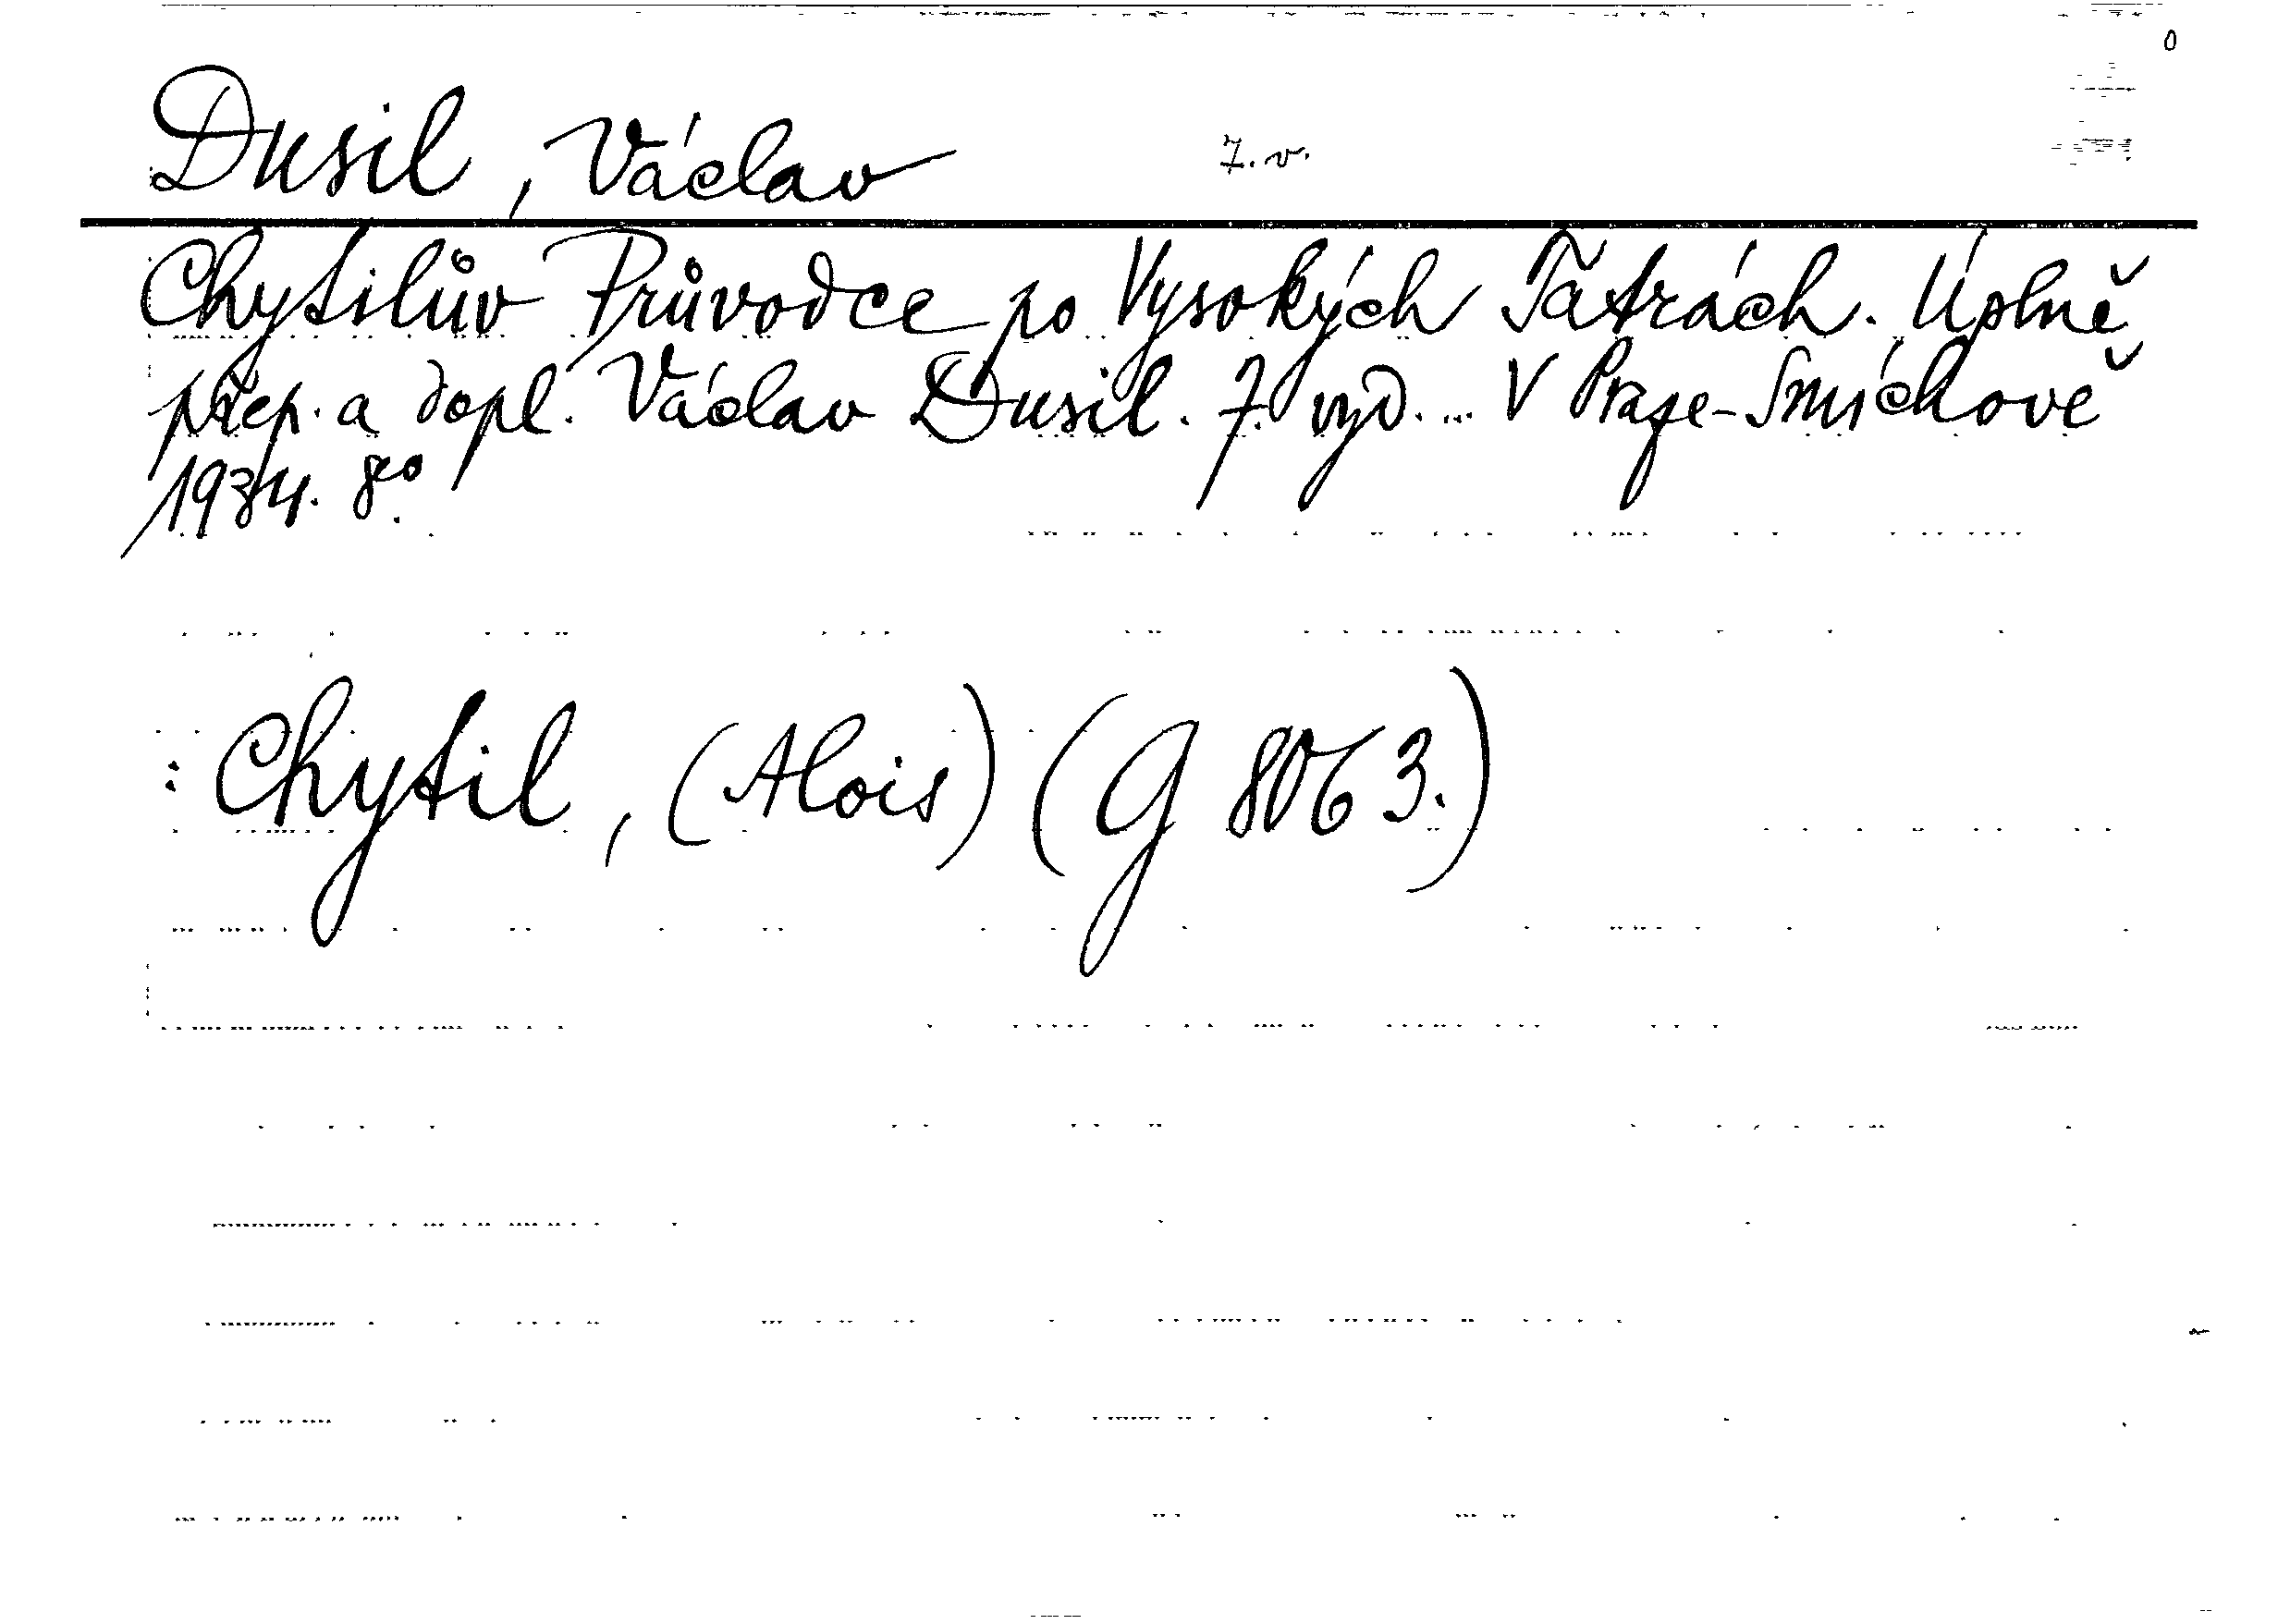 Dusil, Václav 7. v.
Chytilův Průvodce po Vysokých Tatrách. Úplně
přep. a dopl. Václav Dusil. 7. vyd. ... V Praze-Smíchově
1934. 8°.
: Chytil, (Alois) (G 8063.)